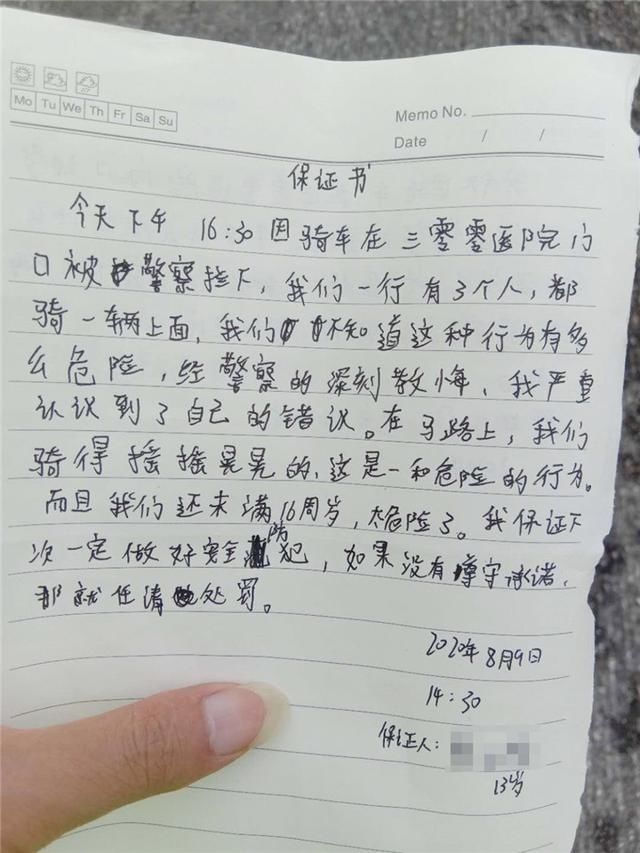 Mo Tu We Th Fr Sa Su
Memo No.
Date / /
保证书
今天下午 16:30因骑车在三零零医院门
口被警察拦下，我们一行有3个人，都
骑一辆上面，我们不知道这种行为有多
么危险，经警察的深刻教悔，我严重
认识到了自己的错误。在马路上，我们
骑得摇摇晃晃的，这是一种危险的行为。
而且我们还未满16周岁，太危险了。我保证下
次一定做好安全防犯，如果没有遵守承诺，
那就任请处罚。
2020年8月9日
14:30
保证人：
13岁